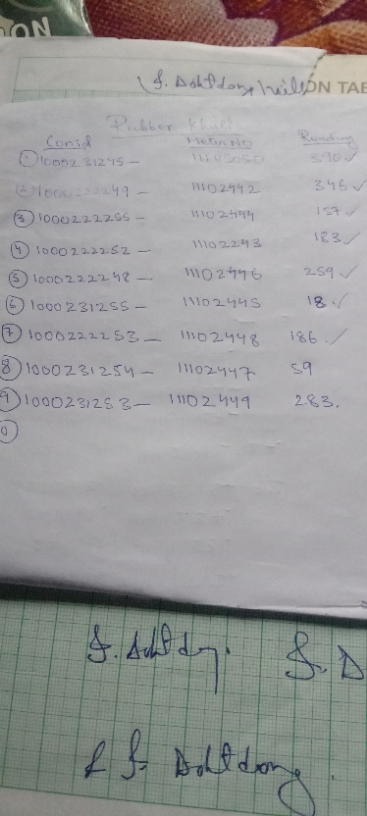 ON
f. Dohtdong ON TAB
Rubber Khull
Consid Meter No Reading
① 1000231245 - 11105050 590 ✓
② 1000222249 - 11102442 346 ✓
③ 1000222255 - 11102444 157 ✓
④ 1000222252 - 11102243 183 ✓
⑤ 1000222248 - 11102446 259 ✓
⑥ 1000231255 - 11102445 18. ✓
⑦ 1000222253 - 11102448 186. ✓
⑧ 1000231254 - 11102447 59
⑨ 1000231253 - 11102449 283.
f. Dohtdong. f. D
f f. Dohtdong.